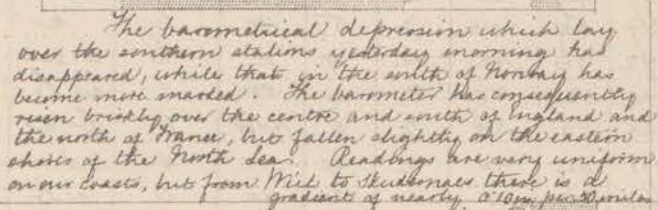 The barometrical depression which lay
over the southern stations yesterday morning has
disappeared, while that in the south of Norway has
become more marked. The barometer has consequently
risen briskly over the centre and south of England and
the north of France, but fallen slightly on the eastern
shores of the North Sea. Readings are very uniform
on our coasts, but from to Skudesnaes there is a
gradient of nearly 0.10 in. per 50 miles